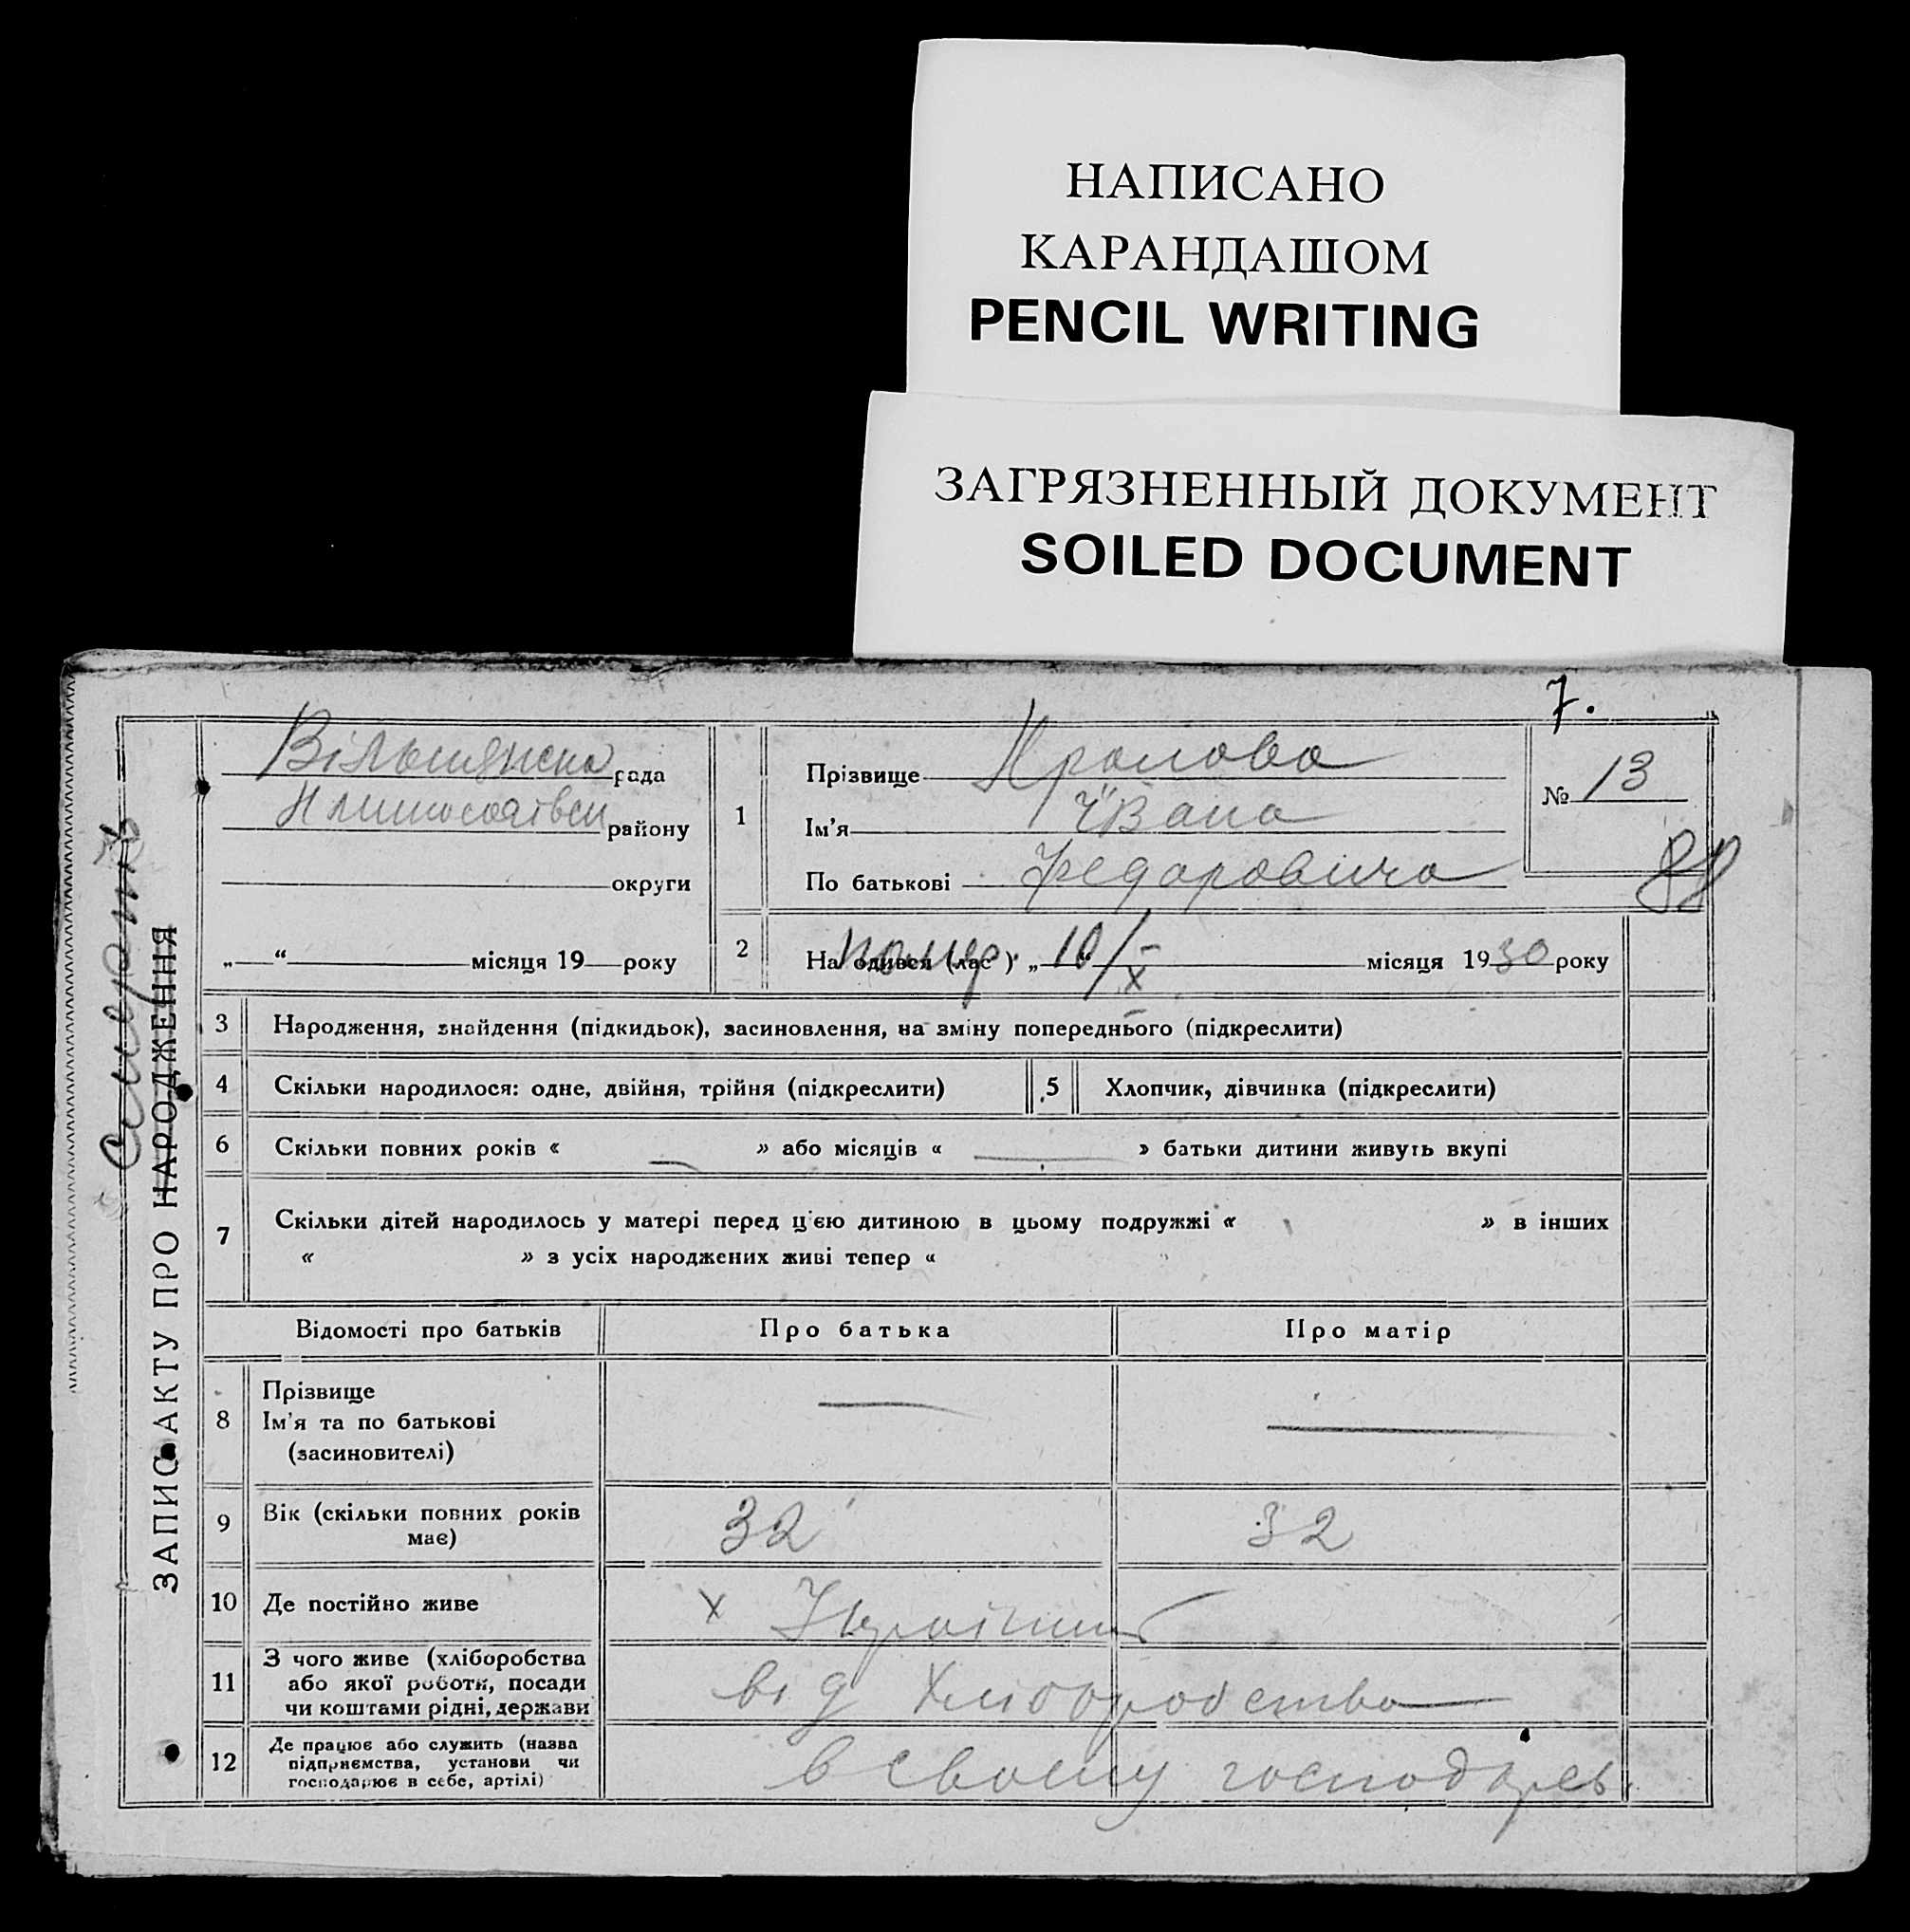 НАПИСАНО
КАРАНДАШОМ
PENCIL WRITING
ЗАГРЯЗНЕННЫЙ ДОКУМЕНТ
SOILED DOCUMENT
7.
Смерть
ЗАПИС АКТУ ПРО НАРОДЖЕННЯ
Вільшянська рада
району
округи
„ “ місяця 19 року
1
Прізвище
Ім'я Йвана
По батькові Федаровича
№ 13
88
2
На одився (лас ) помер „ 10/X місяця 1930 року
3 Народження, знайдення (підкидьок), засиновлення, на зміну попереднього (підкреслити)
4 Скільки народилося: одне, двійня, трійня (підкреслити) 5 Хлопчик, дівчинка (підкреслити)
6 Скільки повних років « — » або місяців « — » батьки дитини живуть вкупі
7 Скільки дітей народилось у матері перед ц'єю дитиною в цьому подружжі « » в інших
« » з усіх народжених живі тепер «
Відомості про батьків Про батька Про матір
8 Прізвище
Ім'я та по батькові — —
(засиновителі)
9 Вік (скільки повних років має) 32 32
10 Де постійно живе х
11 З чого живе (хліборобства або якої роботи, посади чи коштами рідні, держави від хліборобства
12 Де працює або служить (назва підприємства, установи чи господарює в себе, артілі) в своему господарсь.